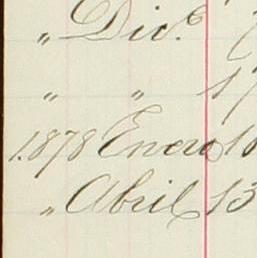 „ Dic.e
„ „ 17
1.878 Enero 10
„ Abril 13